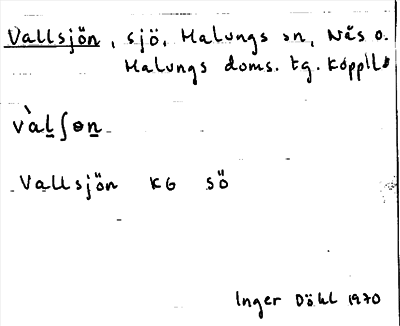 Vallsjön, sjö, Malungs sn, Nås o.
Malungs doms. tg. Kopp11
v̀al̲ʃɵn̲
Vallsjön KG SÖ
Inger Döhl 1970